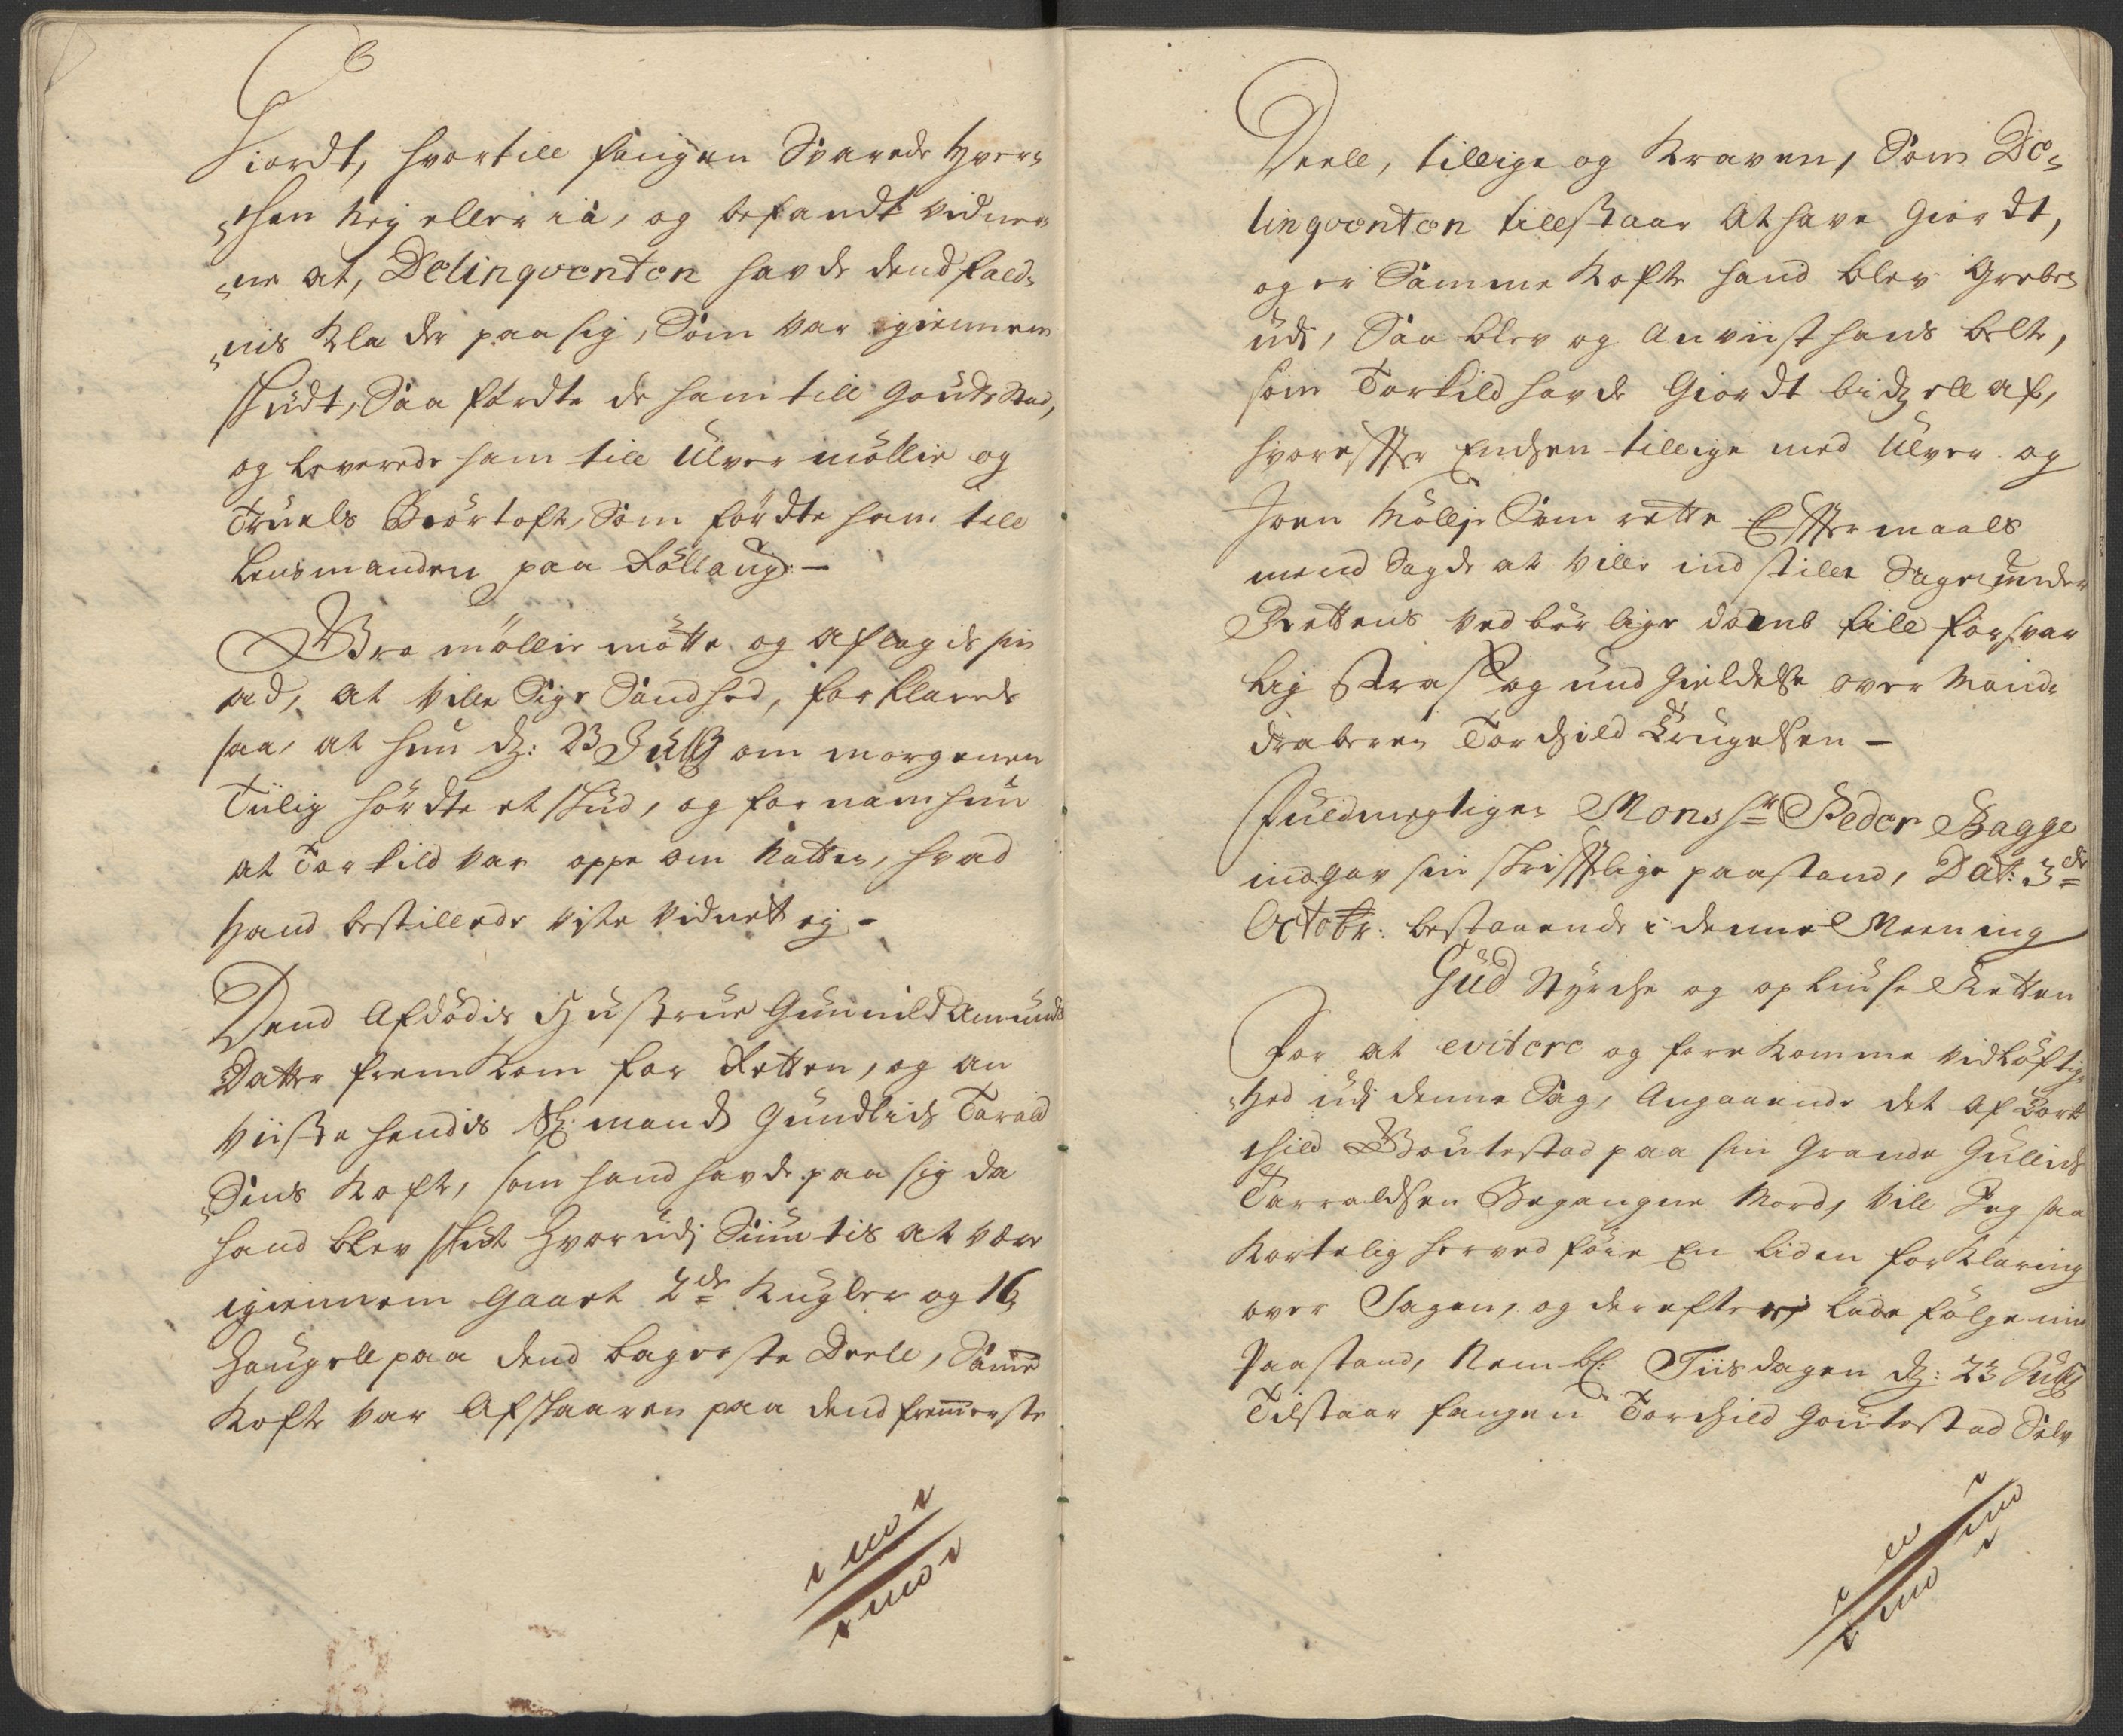 Giordt, hvortill fangen Svarede hver-
chen Neÿ eller ia, og befandt vidner-
ne at, Delinqventen havde dend fald-
nis Klæder paa sig, Som var igiennem
skudt, Saa førdte de ham till Goutestad,
og leverede ham till Ulver møllie og
Truels Biørtoft, Som førdte ham till
Lensmanden paa Føllaug –
Bro møllie møtte og Aflagde sin
æd, at ville Sige Sandhed, forklarede
saa, at hun d: 23 Julÿ om morgenen
Tiilig hørdte et skud, og fornam hun
at Torkild var oppe om Natten, hvad
hand bestillede viste vidnet eÿ –
Dend Afdødis Hustrue Gunnild Amunds
Datter fremkom for Retten, og an
viiste hendis Sl: mand Gundleid Tarald
Søns Koft, som hand havde paa sig da
hand blev skut hvorudi Siuntis at være
igiennem gaaet 2de Kugler og 16
Haugell paa dend bagerste Deele, Samme
Kofte var Afskaaren paa dend fremmerste
Deele, tillige og Kraven, Som De-
linqventen tillstaar at have giordt,
og er Samme Kofte hand blev Greben
udi, Saa blev og anviist hans belte,
som Torkild havde Giordt bidzell af,
hvorefter Enchen tillige med Ulver og
Joen Møllje Som rette Eftermaals
mend Sagde at ville indstille Sagen under
Rettens vedbørlige domb till forsvar
lig straf og undgieldelse over Mand-
draberen Torchild Trugelsen –
Fuldmegtigen Monsr Peder Bagge
indgav sin skrifftlige paastand, Dat: 3de
Octobr: bestaaende i denne Meening
Gud Styrche og opliuse Retten
For at evitere og forekomme vidløftig-
hed udj denne Sag, Angaaende det af Tor-
child Goutestad paa sin Grande Gulleids
Tarraldsen Begangne Mord, vill Jeg saa
Kortelig herved føie En liden forklaring
over Sagen, og derefter lade følge min
Paastand, Nembl: Tiisdagen d: 23 Julÿ
Tilstaar fangen Torchild Goutestad Selv